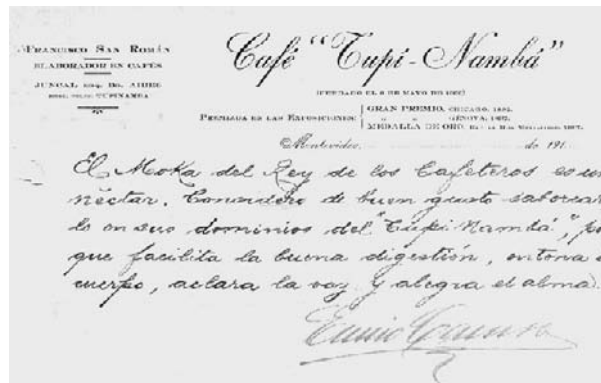 FRANCISCO SAN ROMÁN
ELABORADOR EN CAFÉS
JUNCAL esq. Bs. AIRES
Café "Tupí-Nambá"
(FUNDADO EL 8 DE MAYO DE
PREMIADA EN LAS EXPOSICIONES:
GRAN PREMIO, CHICAGO,
" " GÉNOVA,
MEDALLA DE ORO,
Montevideo, de 191
El Moka del Rey de los Cafeteros es un
néctar. Considero de buen gusto saborear
lo en sus dominios del "Tupí Nambá", po
que facilita la buena digestión, entona e
cuerpo, aclara la voz y alegra el alma.